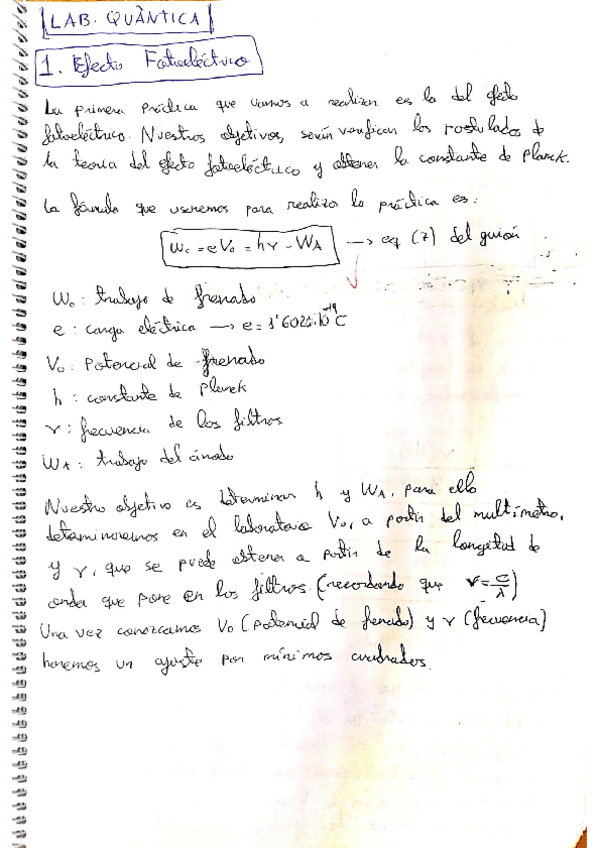 LAB. QUÂNTICA
1. Efecto Fotoeléctrico
La primera práctica que vamos a realizar es la del efecto
fotoeléctrico. Nuestros objetivos, serán verificar los postulados de
la teoría del efecto fotoeléctrico y obtener la constante de Planck.
La fórmula que usaremos para realizar la práctica es:
W₀ = eV₀ = hν - W_A → eq (7) del guión
W₀: trabajo de frenado
e: carga eléctrica → e = 1'602·10⁻¹⁹C
V₀: Potencial de frenado
h: constante de Planck
ν: frecuencia de los filtros
W_A: trabajo del ánodo
Nuestro objetivo es determinar h y W_A, para ello
determinaremos en el laboratorio V₀, a partir del multímetro,
y ν, que se puede obtener a partir de la longitud de
onda que pone en los filtros. (recordando que ν = c/λ)
Una vez conozcamos V₀ (potencial de frenado) y ν (frecuencia)
haremos un ajuste por mínimos cuadrados.